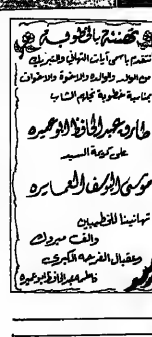 تهنئة بالخطوبة
نتقدم بأسمى آيات التهاني والتبريك
من الوالد والوالده والاخوة والاخوات
بمناسبة خطوبة نجلهم الشاب
طارق عبدالحافظ ابو عميره
على كريمة السيد
موسى اليوسف العمايره
تهانينا للخطيبين
والف مبروك
وعقبال الفرحه الكبرى